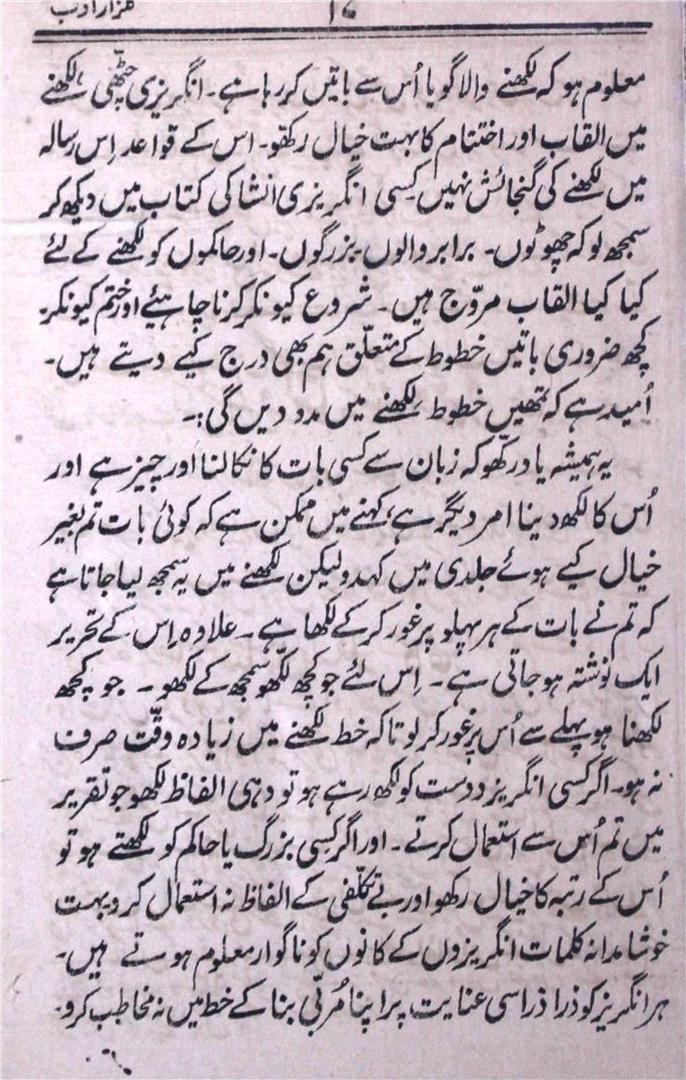 ہزار ادب
۱۶
معلوم ہو کہ لکھنے والا گویا اُس سے باتیں کر رہا ہے۔ انگریزی چٹھّی لکھنے
میں القاب اور اختتام کا بہت خیال رکھو۔ اس کے قواعد اِس رسالہ
میں لکھنے کی گنجائش نہیں کِسی انگریزی انشا کی کتاب میں دیکھ کر
سمجھ لو کہ چھوٹوں۔ برابر والوں۔ بزرگوں۔ اور حاکموں کو لکھنے کے لئے
کیا کیا القاب مروّج ہیں۔ شروع کیونکر کرنا چاہیئے اور ختم کیونکر
کچھ ضروری باتیں خطوط کے متعلّق ہم بھی درج کیے دیتے ہیں۔
اُمید ہے کہ تمھیں خطوط لکھنے میں مدد دیں گی:۔
یہ ہمیشہ یاد رکھو کہ زبان سے کسی بات کا نکالنا اَور چیز ہے اور
اُس کا لکھ دینا امر دیگر ہے، کہنے میں ممکن ہے کہ کوئی بات تم بغیر
خیال کیے ہوئے جلدی میں کہدو لیکن لکھنے میں یہ سمجھ لیا جاتا ہے
کہ تم نے بات کے ہر پہلو پر غور کر کے لکھا ہے۔ علاوہ اِس کے تحریر
ایک نوشتہ ہو جاتی ہے۔ اِس لئے جو کچھ لکھو سمجھ کے لکھو۔ جو کچھ
لکھنا ہو پہلے سے اُس پر غور کر لو تاکہ خط لکھنے میں زیادہ وقّت صرف
نہ ہو۔ اگر کسی انگریز دوست کو لکھ رہے ہو تو وہی الفاظ لکھو جو تقریر
میں تم اُس سے استعمال کرتے۔ اور اگر کسِی بزرگ یا حاکم کو لکھتے ہو تو
اُس کے رتبہ کا خیال رکھو اور بے تکلّفی کے الفاظ نہ استعمال کرو بہت
خوشامدانہ کلمات انگریزوں کے کانوں کو ناگوار معلوم ہوتے ہیں۔
ہر انگریز کو ذرا ذرا سی عنایت پر اپنا مُربّی بنا کے خط میں نہ مخاطب کرو۔